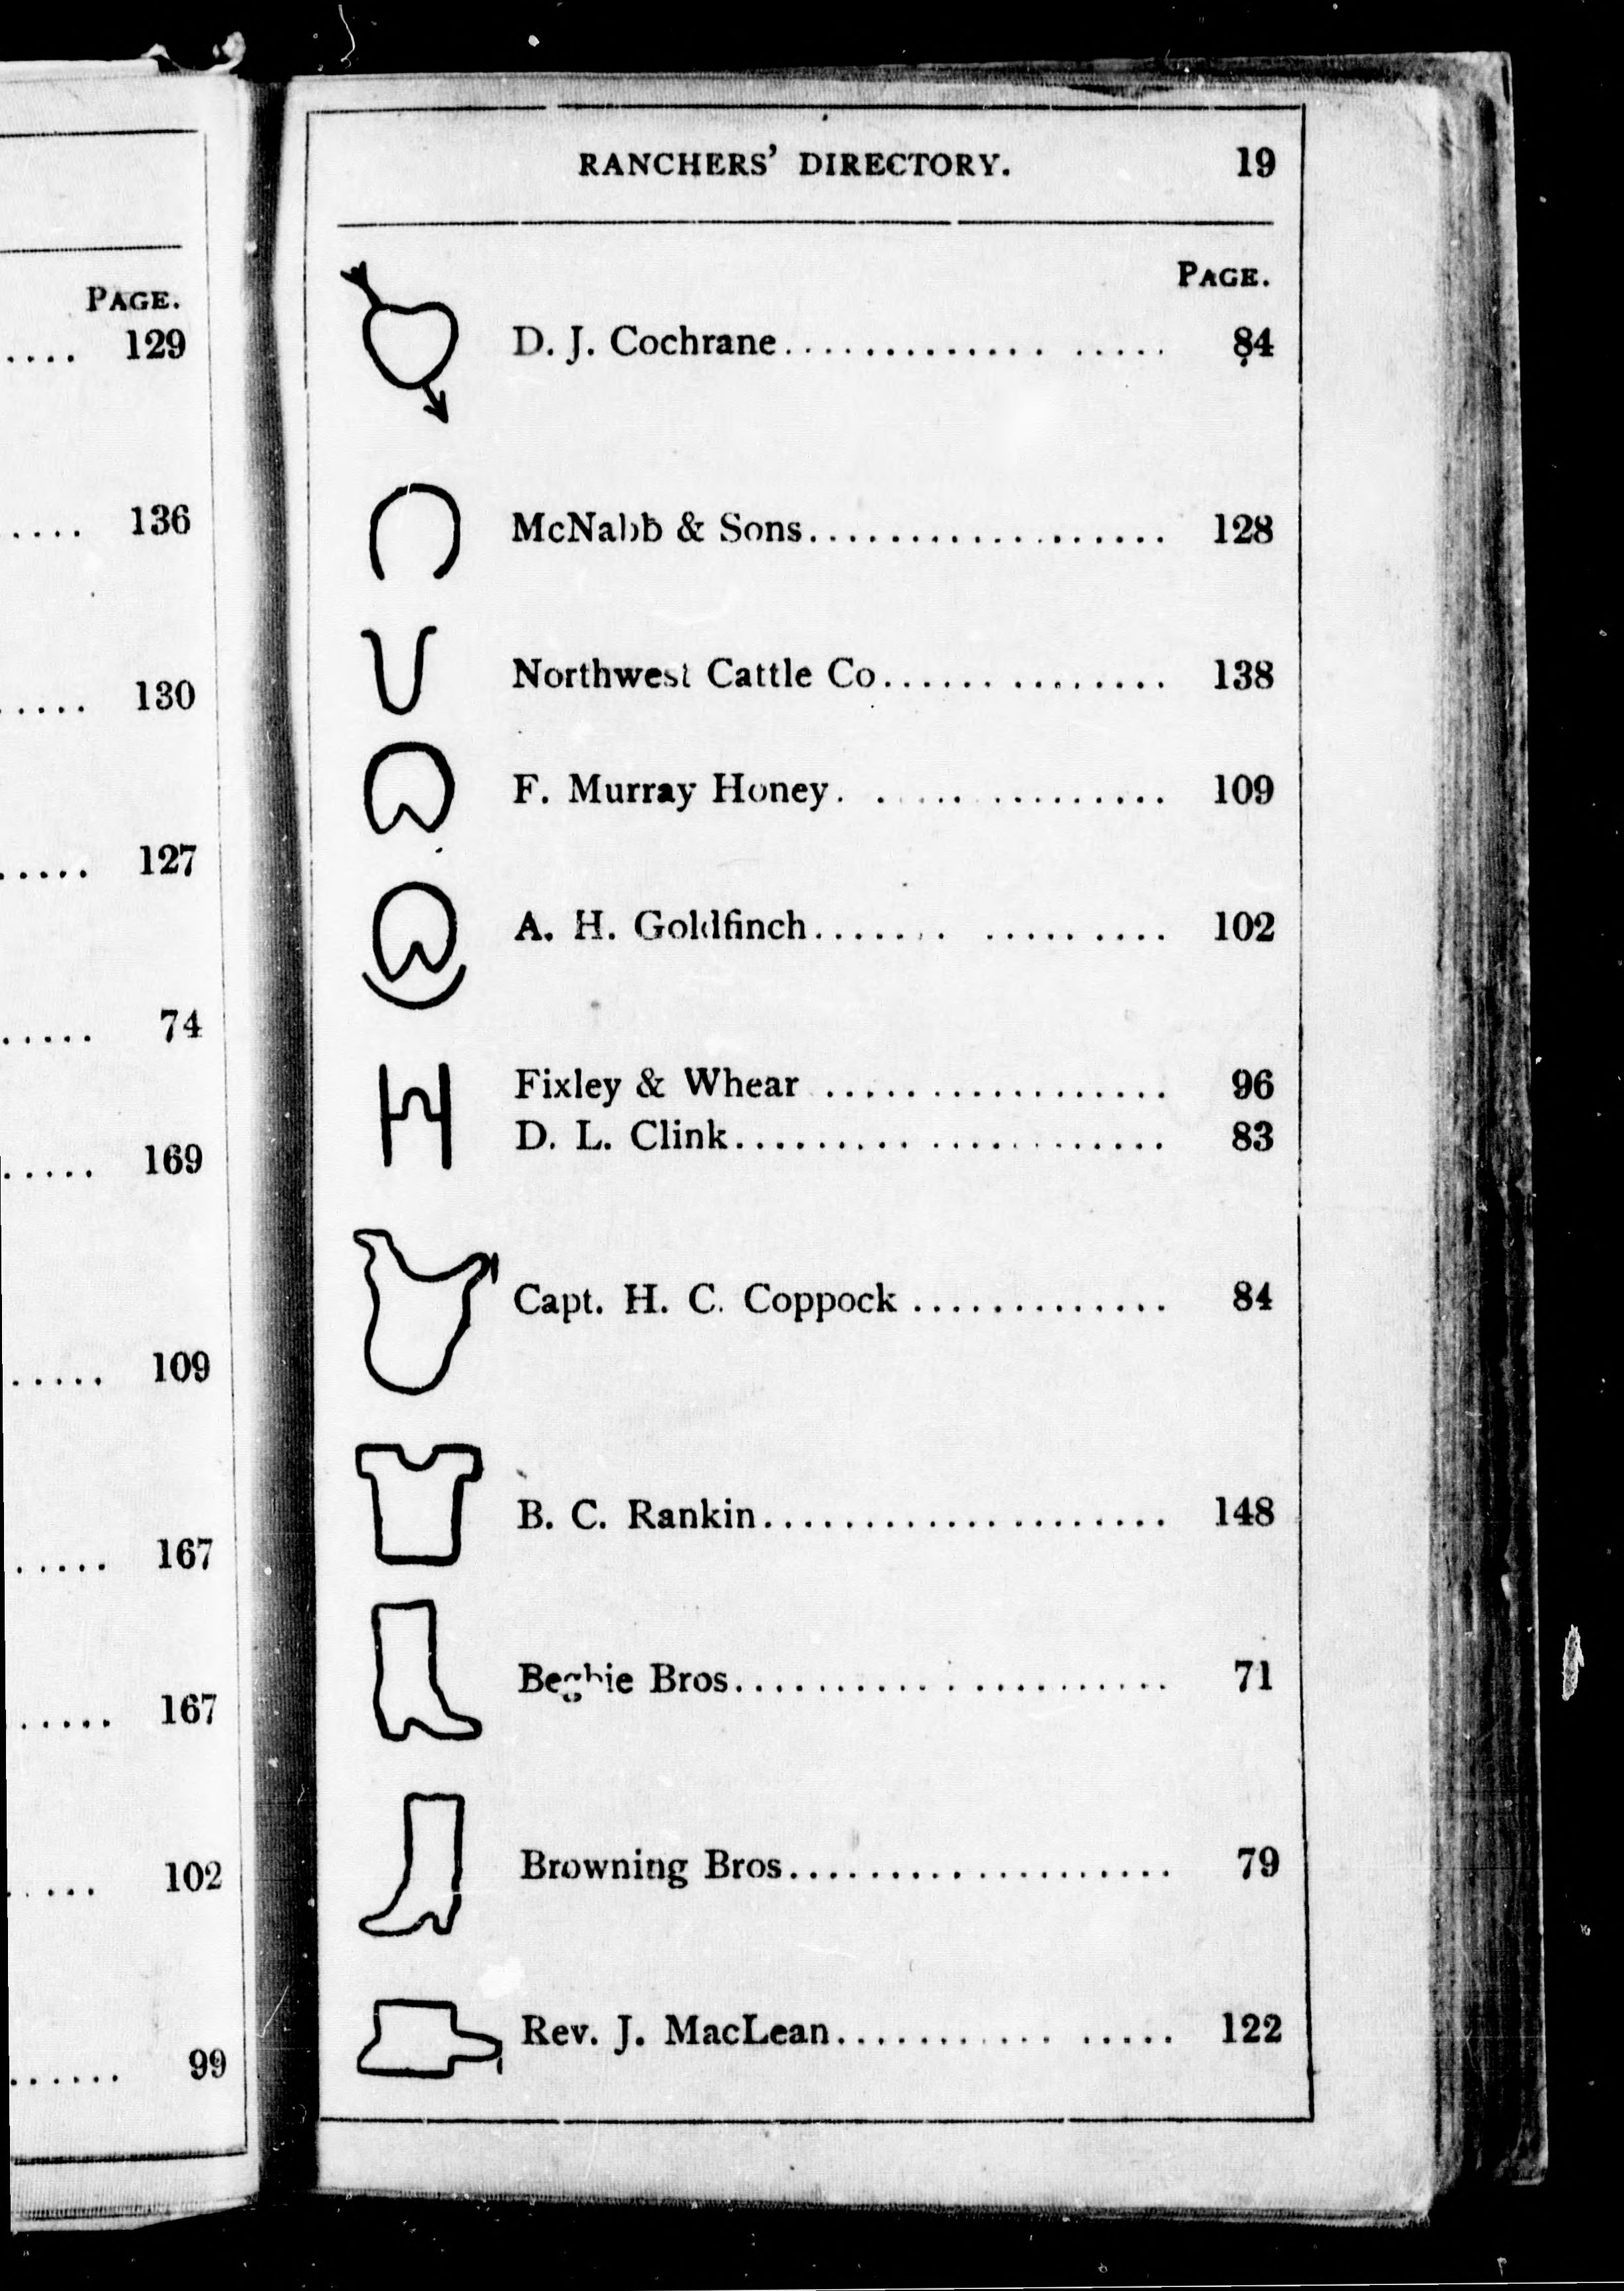 PAGE.
.... 129
.... 136
..... 130
..... 127
..... 74
..... 169
..... 109
..... 167
..... 167
..... 102
...... 99
RANCHERS' DIRECTORY. 19
PAGE.
D. J. Cochrane.................. 84
McNabb & Sons.................. 128
Northwest Cattle Co.............. 138
F. Murray Honey................ 109
A. H. Goldfinch................. 102
Fixley & Whear ................. 96
D. L. Clink...................... 83
Capt. H. C. Coppock ............. 84
B. C. Rankin.................... 148
Begbie Bros...................... 71
Browning Bros................... 79
Rev. J. MacLean................ 122